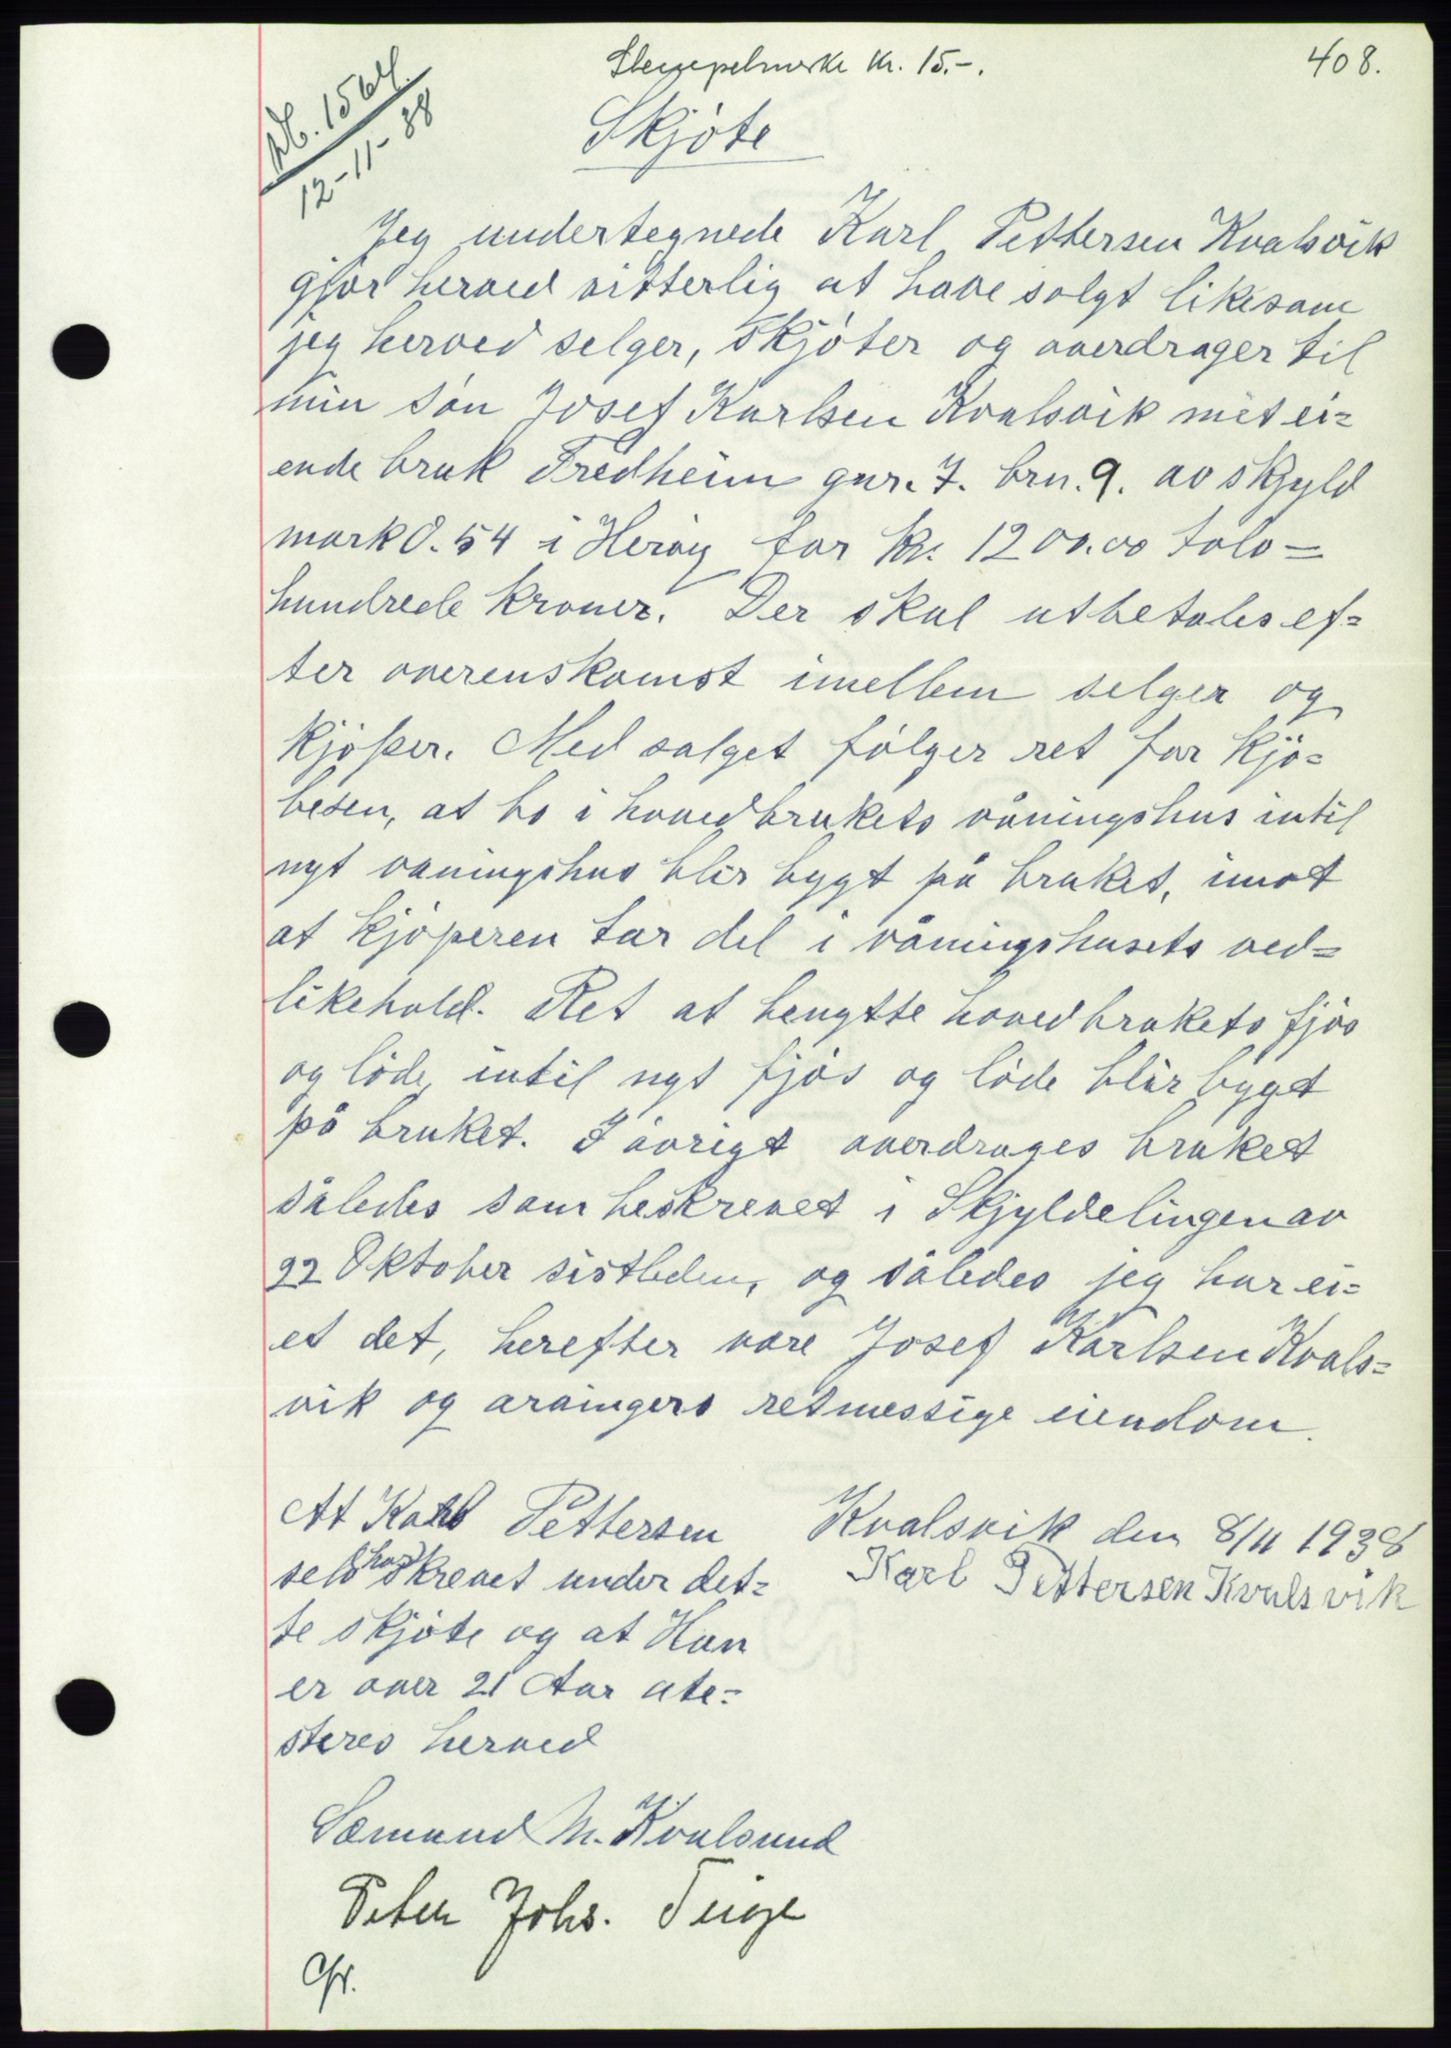 Stempelmerke kr. 15.-.
408.
Nb. 1564.
12-11-38
Skjöte
Jeg undertegnede Karl Pettersen Kvalsvik
gjör herved vitterlig at have solgt likesom
jeg herved selger, skjöter og overdrager til
min sön Josef Karlsen Kvalsvik mit ei=
ende bruk Fredheim gnr. 7. brn. 9. av skjyld
mark 0.54 i Heröy for kr. 1200.00 tolv=
hundrede kroner. Der skal utbetales ef=
ter overenskomst imellem selger og
kjöper. Med salget fölger ret for kjö=
beren, at bo i hovedbrukets våningshus intil
nyt vaningshus blir bygt på bruket, imot
at kjöperen tar del i våningshusets ved=
likehold. Ret at benytte hovedbrukets fjös
og löde, intil nyt fjös og löde blir bygget
på bruket. I övrigt overdrages bruket
således som beskrevet i Skjyldelingen av
22 Oktober sistleden, og således jeg har ei=
et det, herefter være Josef Karlsen Kvals=
vik og arvingers retmessige eiendom.
Kvalsvik den 8/11 1938
Karl Pettersen Kvalsvik
At Karl Pettersen
selv har skrevet under det=
te skjöte og at Han
er over 21 Aar ate=
steres herved
Sæmund M. Kvalsund
Peter Johs. Teige